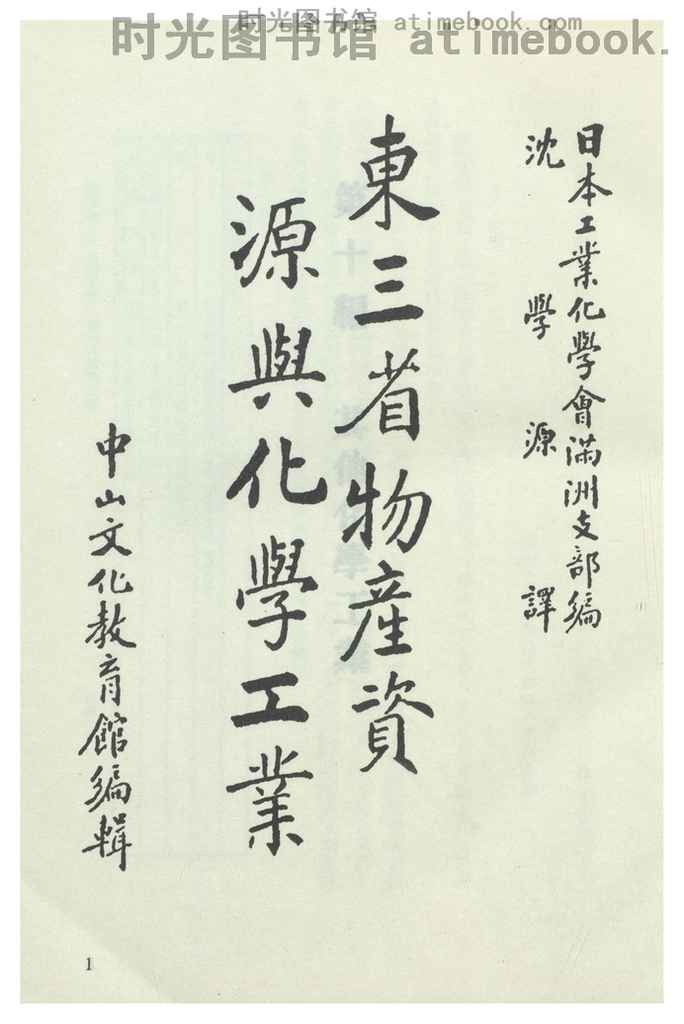 时光图书馆 atimebook.com
时光图书馆 atimebook.
日本工業化學會滿洲支部編
沈學源譯
東三省物產資
源與化學工業
中山文化教育館編輯
1